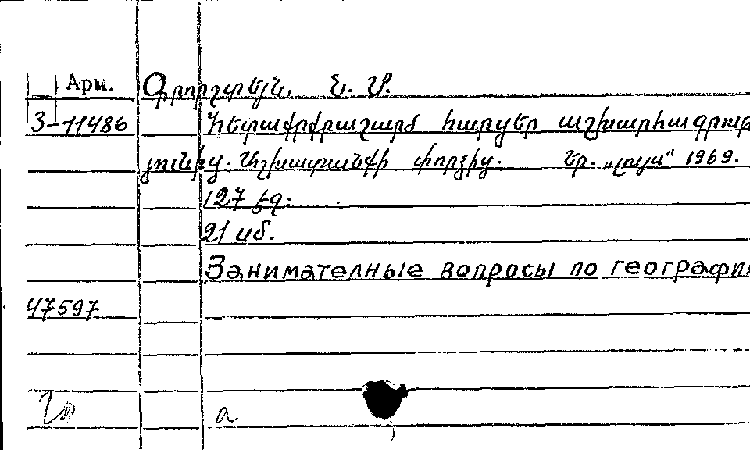 Арм.
3-11486 Հետաքրքրաշարժ հարցեր աշխարհագրու
յունից. Աշխատանքի փորձից. Եր. „Լույս“ 1969.
127 էջ.
21 կոպ.
Занимательные вопросы по географи
47597
а